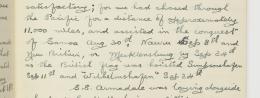 satisfactory; for we had closed through
the Pacific for a distance of approximately
11,000 miles, and assisted in the conquest
of Samoa Aug 30th Nauru Sept 9th and
New Britain, Mecklenburg by Sept 24th
as the British flag was hoisted Simpsonhafen
Sept 11th and Wilhelmshafen Sept 24th
S.S. Armadale was laying alongside